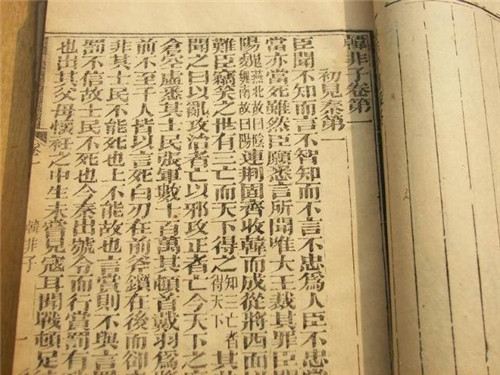 韓非子卷第一
初見秦第一
臣聞不知而言不智知而不言不忠爲人臣不忠
當亦當死雖然臣願悉言所聞唯大王裁其罪臣聞
陽魏燕北故曰陰魏南故曰陽連荆固齊收韓而成從將西面
難臣竊笑之世有三亡而天下得之知三亡者得天下其
聞之曰以亂攻治者亡以邪攻正者亡今天下之
倉空虛悉其士民張軍數十百萬其頓首戴羽爲將
前不至千人皆以言死白刃在前斧鑕在後而卻
非其士民不能死也上不能故也言賞則不與
罰不信故士民不死也今秦出號令而行賞罰有
也出其父母懷衽之中生未嘗見寇耳聞戰頓足
韓非子